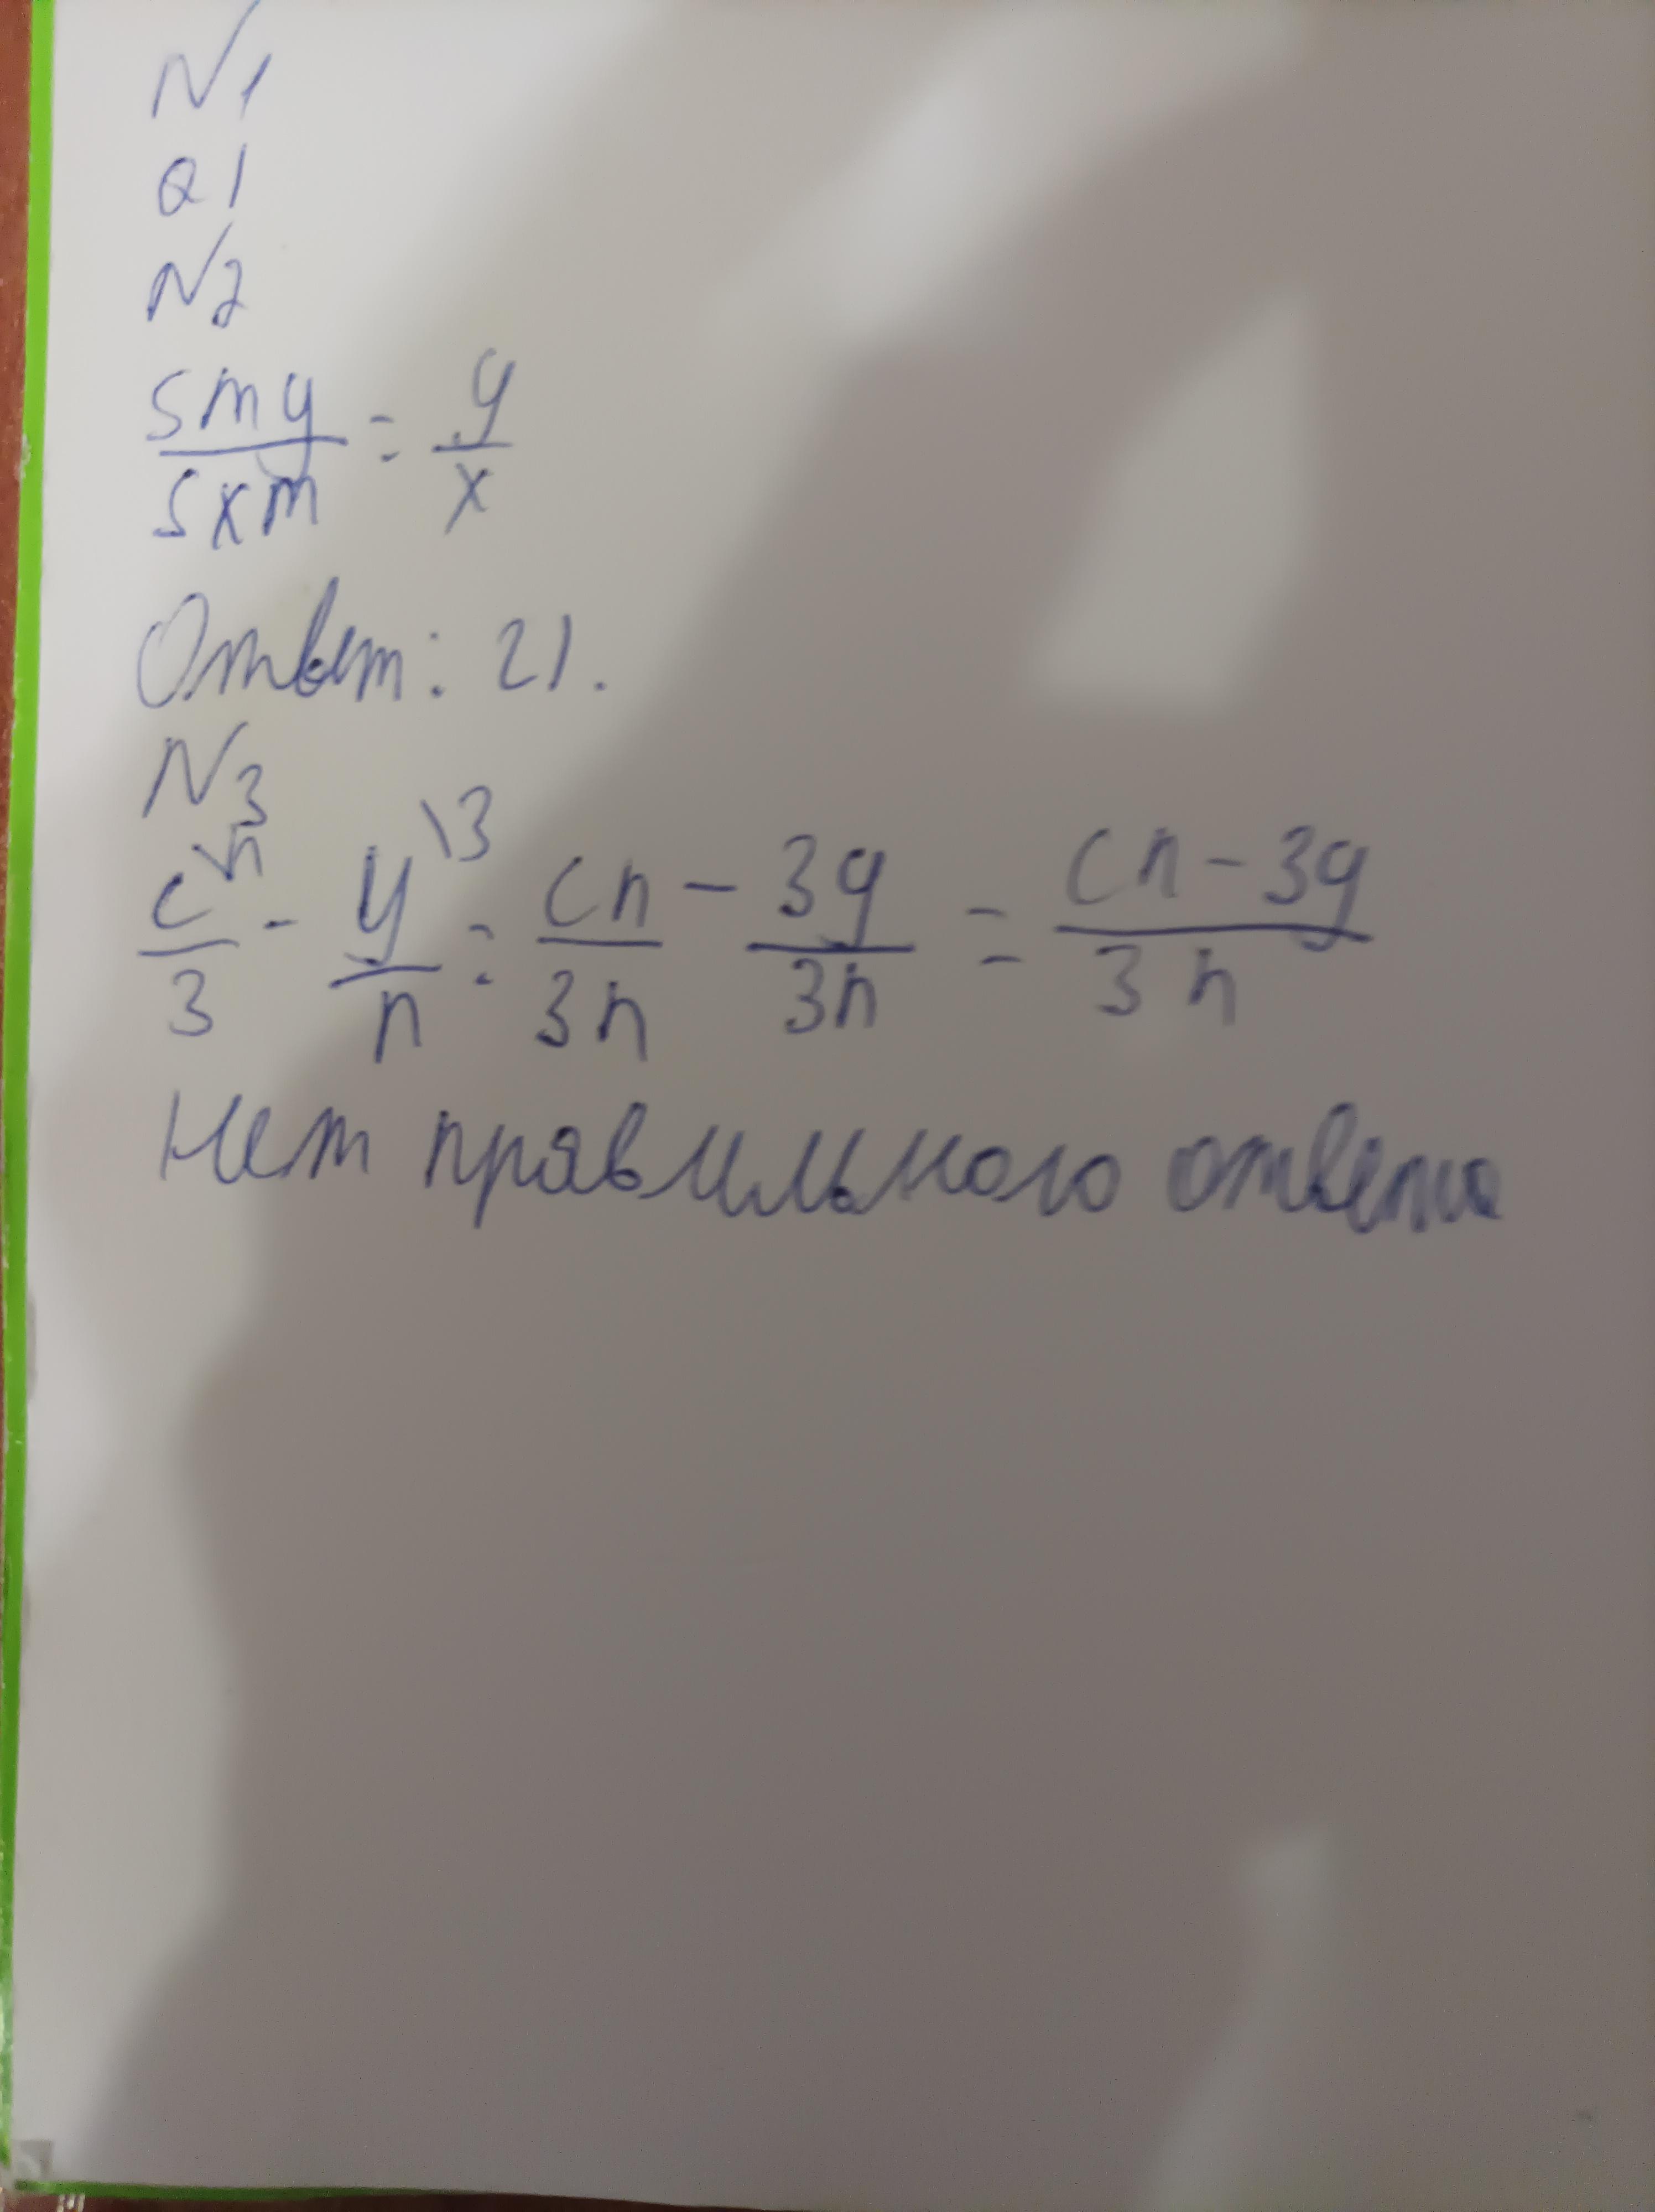 N1
а)
N2
5my/5xm = y/x
Ответ: 2).
N3
c\n/3 - y\3/n = cn/3n - 3y/3n = cn-3y/3n
Нет правильного ответа